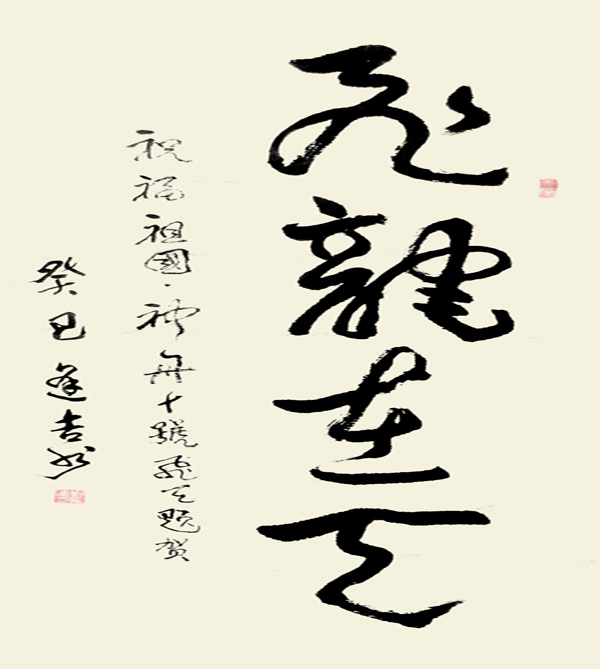 飛龍在天
祝福祖國·神舟十號飛天題賀
癸巳逢吉